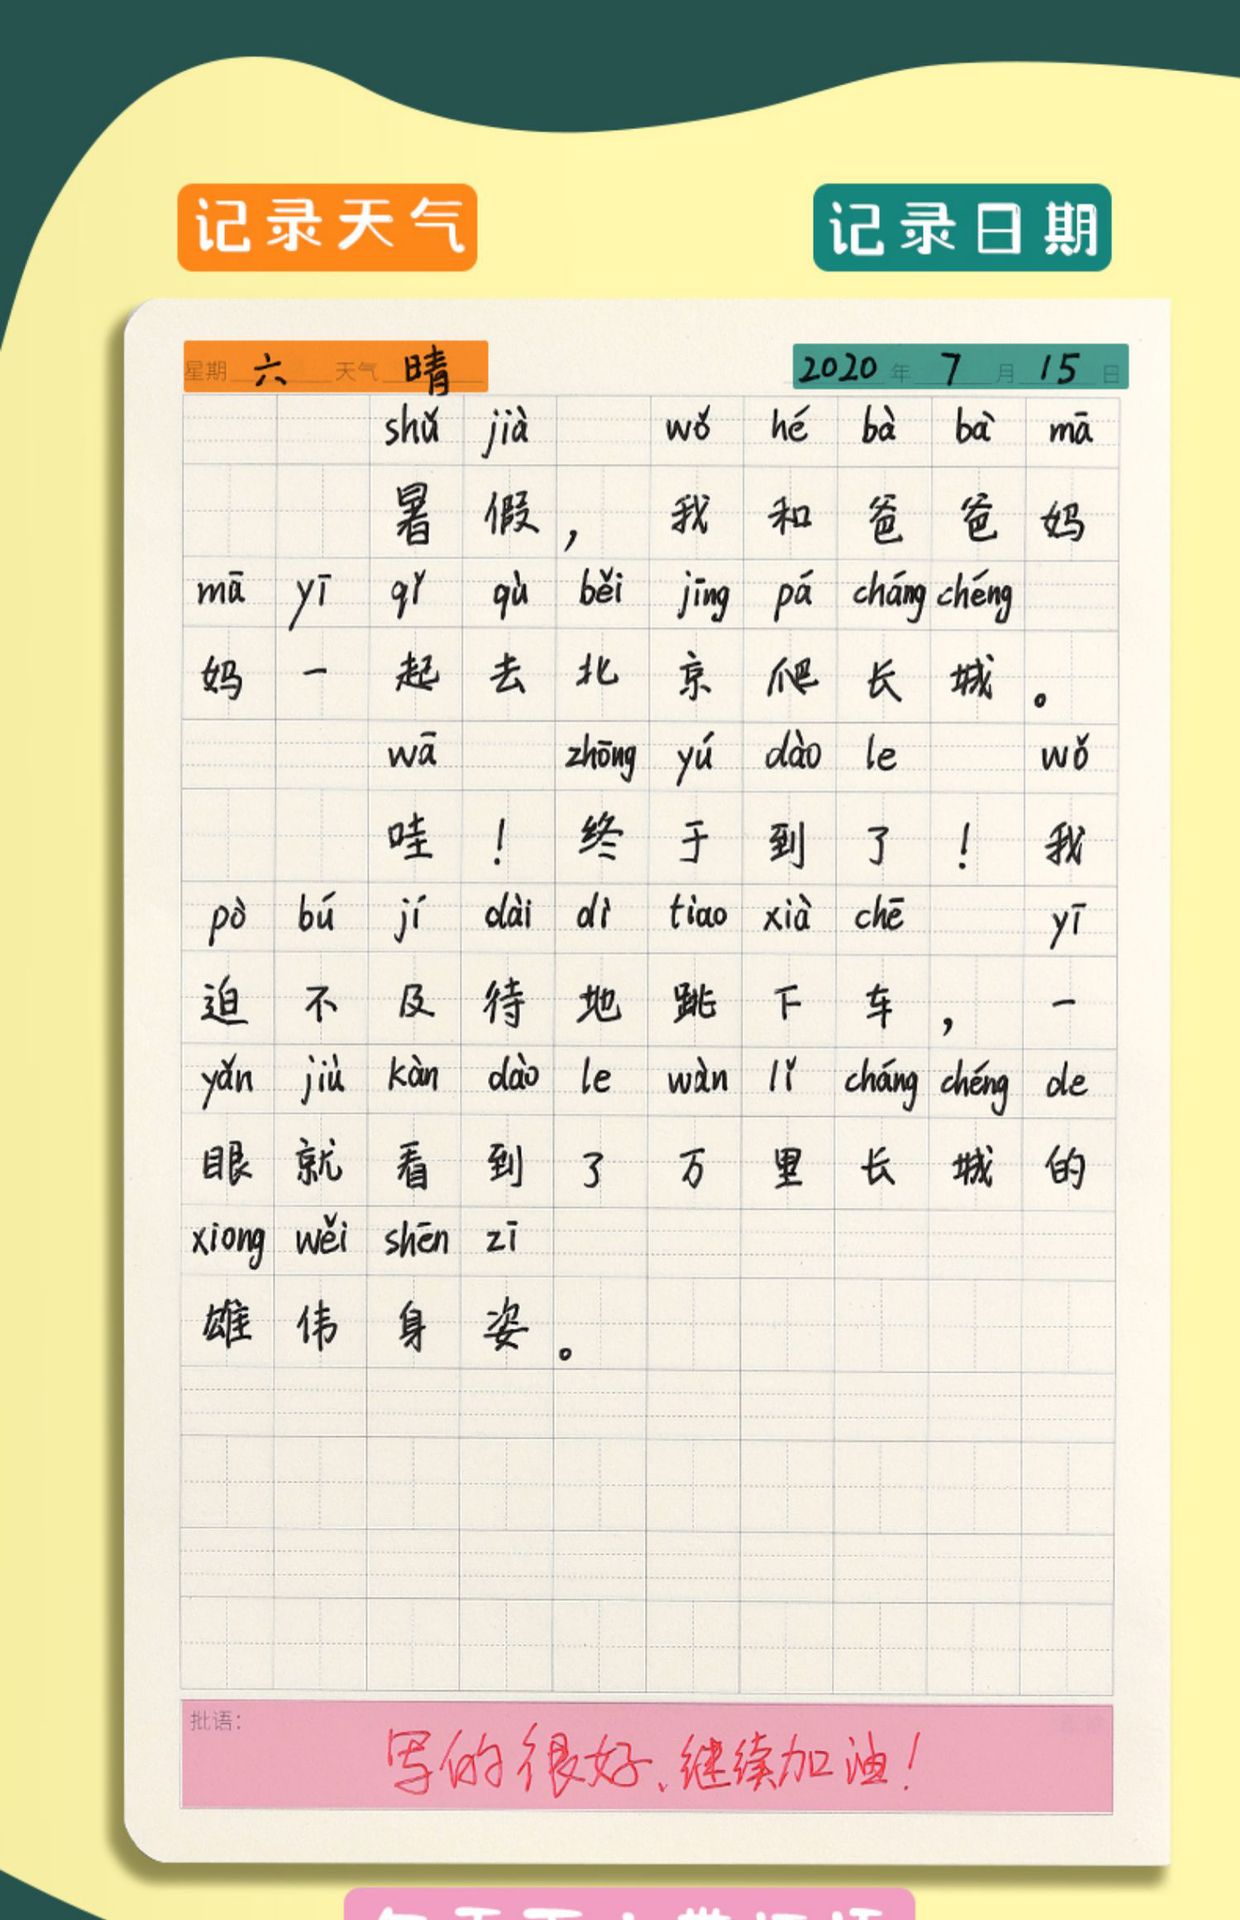 记录天气 记录日期
星期 六 天气 晴 2020 年 7 月 15 日
shǔ jià wǒ hé bà bà mā
暑假，我和爸爸妈
mā yī qǐ qù běi jīng pá cháng chéng
妈一起去北京爬长城。
wā zhōng yú dào le wǒ
哇！终于到了！我
pò bú jí dài dì tiao xià chē yī
迫不及待地跳下车，一
yǎn jiù kàn dào le wàn lǐ cháng chéng de
眼就看到了万里长城的
xiong wěi shēn zī
雄伟身姿。
批语：
写的很好、继续加油！